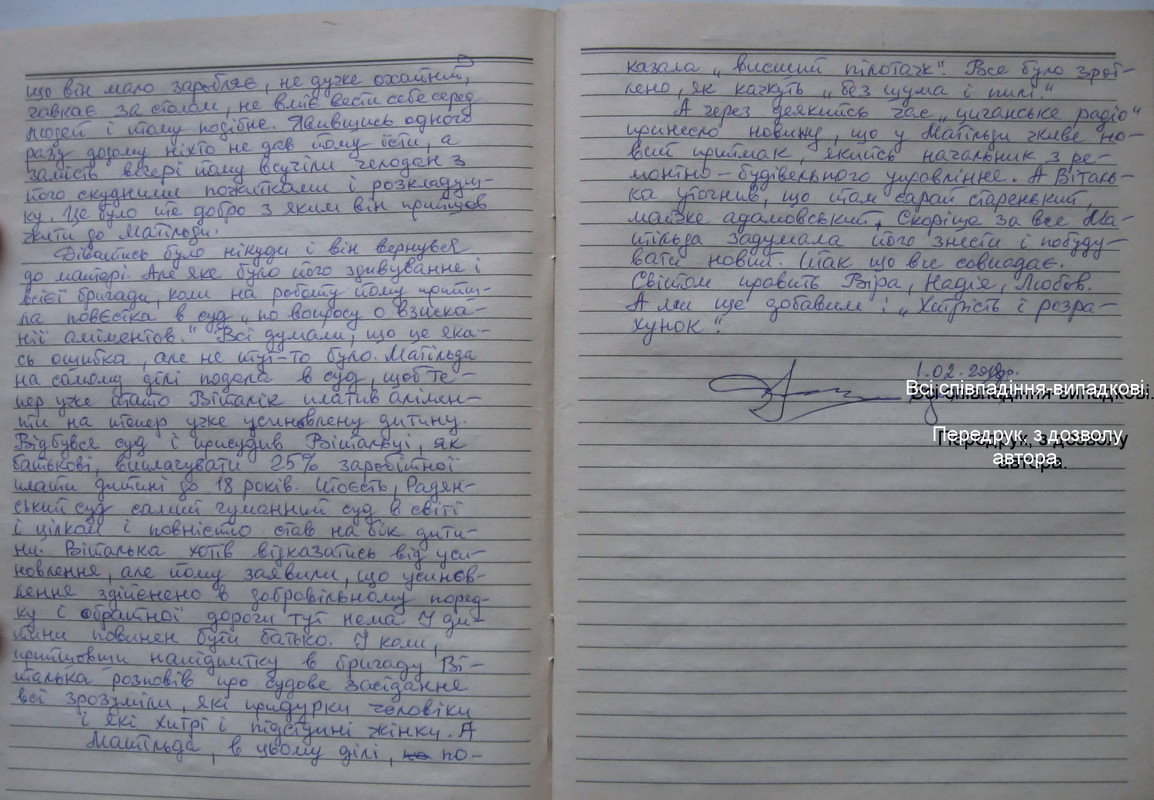 3
що він мало заробляє, не дуже охайний,
чавкає за столом, не вміє вести себе серед
людей і тому подібне. Явившись одного
разу додому ніхто не дав йому їсти, а
замість вечері йому всучили челодан з
його скудними пожитками і розкладуш-
ку. Це було те добро з яким він прийшов
жити до Матільди.
Діватись було нікуди і він вернувся
до матері. Але яке було його здивуванне і
всієї бригади, коли на роботу йому прийш-
ла повєстка в суд „по вопросу о взиска-
нії аліментов." Всі думали, що це яка-
сь ошибка, але не тут-то було. Матільда
на самому ділі подала в суд, щоб те-
пер уже тато Віталік платив алімен-
ти на тепер уже усиновлену дитину.
Відбувся суд і присудив Віталькі, як
батькові, виплачувати 25% заробітної
плати дитині до 18 років. Тоєсть, Радян-
ський суд самий гуманний суд в світі
і цілком і повністю став на бік дити-
ни. Віталька хотів відказатись від уси-
новлення, але йому заявили, що усинов-
лення здійснено в добровільному поряд-
ку і обратної дороги тут нема. У ди-
тини повинен бути батько. І коли,
прийшовши напідпитку в бригаду Ві-
талька розповів про судове засідання
всі зрозуміли, які придурки чоловіки
і які хитрі і підступні жінки. А
Матільда, в цьому ділі, по-
казала „висший пілотаж". Все було зроб-
лено, як кажуть „без шума і пилі."
А через деякийсь час „циганське радіо"
принесло новину, що у Матільди живе но-
вий приймак, якийсь начальник з ре-
монтно-будівельного управлінне. А Віталь-
ка уточнив, що там сарай старенький,
майже адамовський. Скоріше за все Ма-
тільда задумала його знести і побуду-
вати новий. Так що все совпадає.
Світом править Віра, Надія, Любов.
А ми ще добавим: „Хитрість і розра-
хунок".
Всі співпадіння-випадкові.
Передрук, з дозволу
автора.